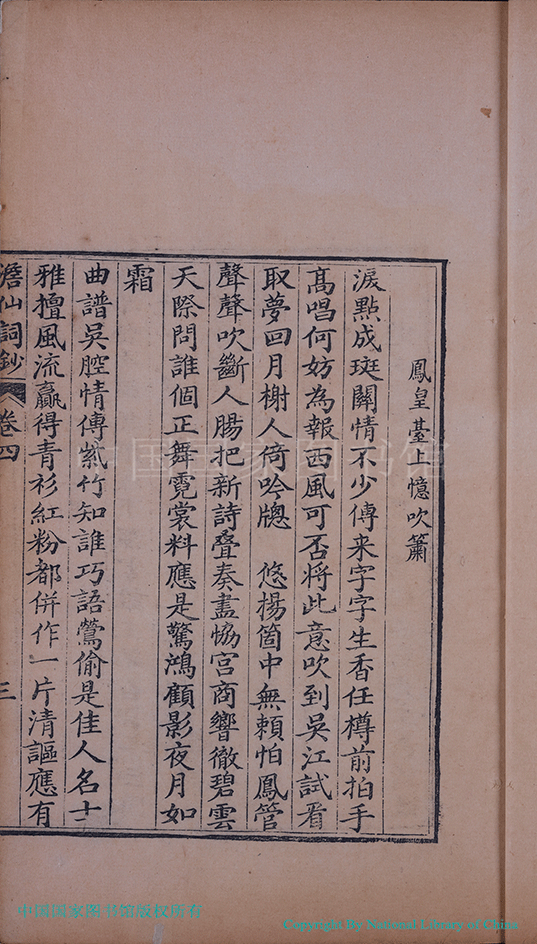 鳳皇臺上憶吹簫
淚點成斑關情不少傳来字字生香任樽前拍手
高唱何妨為報西風可否將此意吹到吳江試看
取夢回月榭人倚吟牕　悠揚箇中無頼怕鳳管
聲聲吹斷人腸把新詩叠奏盡恊宮商響徹碧雲
天際問誰個正舞霓裳料應是驚鴻顧影夜月如
霜
曲譜吳腔情傳紫竹知誰巧語鶯偷是佳人名士
雅擅風流贏得青衫紅粉都併作一片清謳應有
澹仙詞鈔　卷四　三
中国国家图书馆
中国国家图书馆版权所有
Copyright By National Library of China